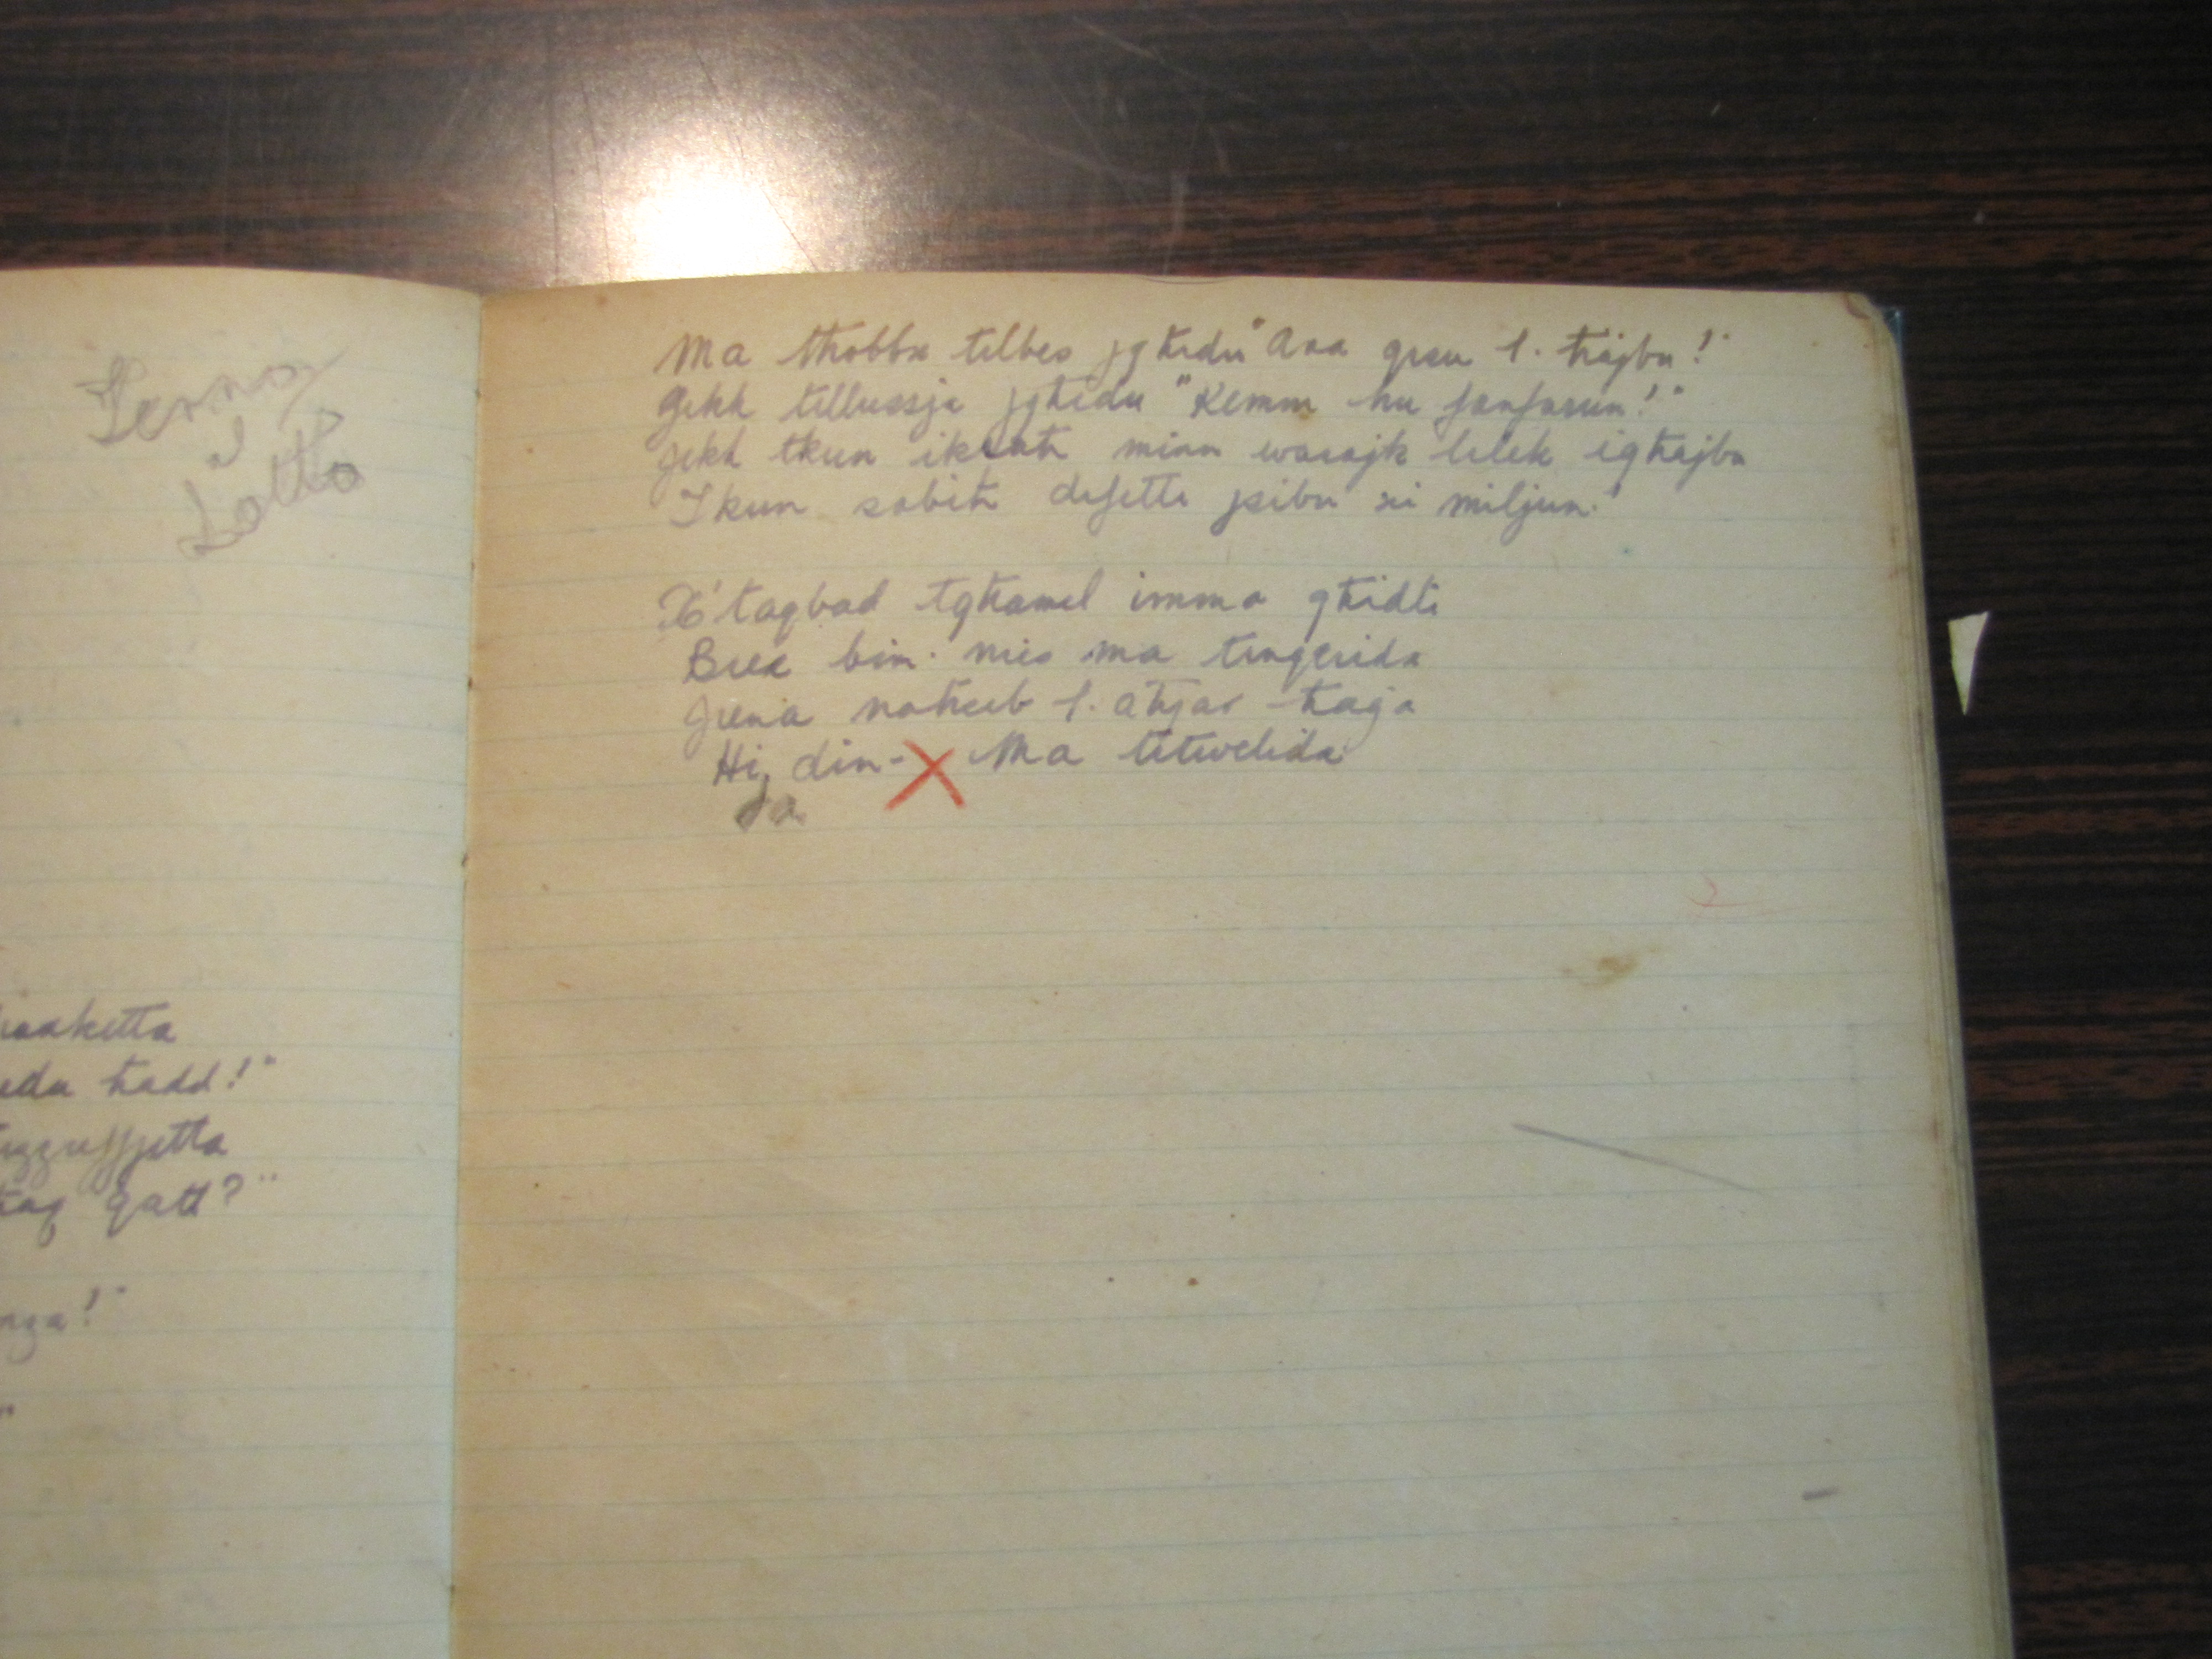 Lotto
haaketta
edu ħadd!"
uzzuffjetta
ħaq qatt?"
nza!"
Ma tħobbx tilbes jgħidu "Ara qisu l-ħajbu!"
Jekk tillussja jgħidu "Kemm hu fanfarun!"
Jekk tkun ikrah minn warajk lilek igħajbu
Ikun sabiħ difetti jsibu xi miljun!
X'taqbad tgħamel imma għidli
Biex bin-nies ma tinqerida
Jiena naħseb l-aħjar ħaġa
Hi din - X Ma titwelida
da